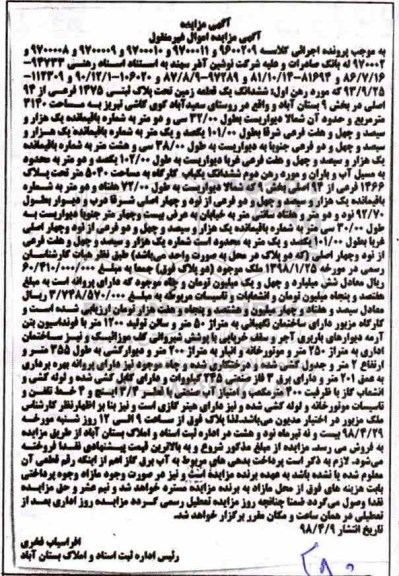 آگهی مزایده
آگهی مزایده اموال غیرمنقول
به موجب پرونده اجرائی کلاسه ۹۶۰۰۲۰۹ و ۹۷۰۰۰۱۱ و ۹۷۰۰۰۱۰ و ۹۷۰۰۰۰۹ و ۹۷۰۰۰۰۸ و
۹۷۰۰۰۲ له بانک صادرات و علیه شرکت نوشین آفر سهند به استناد اسناد رهنی ۹۴۷۳۳-
۸۶/۷/۱۶ و ۸۱۶۹۴-۸۱/۱۰/۱۴ و ۹۷۲۸۹-۸۷/۸/۹ و ۱۰۶۰۲۰-۹۰/۱۲/۱ و ۱۱۳۳۰۹-
۹۳/۹/۲۵ که مورد رهن اول: ششدانگ یک قطعه زمین تحت پلاک ثبتی ۱۴۷۵ فرعی از ۹۴
اصلی در بخش ۹ بستان آباد و واقع در روستای سعیدآباد کوی گاشی تبریز به مساحت ۳۱۴۰
مترمربع و حدود آن شمالا دیواریست بطول ۳۲/۰۰ سی و دو متر به شماره باقیمانده یک هزار و
سیصد و چهل و هفت فرعی شرقا بطول ۱۰۱/۰۰ یکصد و یک متر به شماره باقیمانده یک هزار و
سیصد و چهل و دو فرعی جنوبا به دیواریست به طول ۳۸/۰۰ سی و هشت متر به شماره باقیمانده
یک هزار و سیصد و چهل و هفت فرعی غربا دیواریست به طول ۱۰۲/۰۰ یکصد و دو متر به محدود
به مسیل آب و باران و مورد رهن دوم ششدانگ یکباب کارگاه به مساحت ۵۰۴۰ متر تحت پلاک
۱۳۶۶ فرعی از ۹۴ اصلی بخش ۹ شمالا دیواریست به طول ۷۲/۰۰ هفتاد و دو متر به شماره
باقیمانده یک هزار و سیصد و چهل و دو فرعی از نود و چهار اصلی شرقا درب و دیوار بطول
۹۲/۷۰ نود و دو متر و هفتاد سانتی متر به خیابان به عرض بیست و چهار متر جنوبا دیواریست به
طول ۳۰/۰۰ سی متر به شماره باقیمانده یک هزار و سیصد و چهل و دو فرعی از نود و چهار اصلی
غربا بطول ۱۰۱/۰۰ یکصد و یک متر به محدود است شماره یک هزار و سیصد و چهل و هفت فرعی
از نود و چهار اصلی (که دو پلاک در محل به صورت واحد می‌باشد) طبق نظر هیات کارشناسان
رسمی در مورخه ۱۳۹۸/۱/۲۵ ملک موجود (دو پلاک فوق) جمعا به مبلغ ۶۰/۴۱۰/۰۰۰/۰۰۰
ریال معادل شش میلیارد و چهل و یک میلیون تومان و چاه موجود که دارای پروانه است به مبلغ
هفتصد و پنجاه میلیون تومان و انشعابات و تاسیسات مربوطه به مبلغ ۳/۷۴۸/۵۷۰/۰۰۰ ریال
معادل سیصد و هفتاد و چهار میلیون و هشتصد و پنجاه و هفت هزار تومان ارزیابی شده است و
کارگاه مزبور دارای ساختمان نگهبانی به متراژ ۵۰ متر و سالن تولید ۱۲۰۰ متر با فونداسیون بتن
آرمه دیوارهای باربری آجر و سقف خرپایی با پوشش شیروانی کف موزائیک و نیز ساختمان
اداری به متراژ ۲۵۰ متر و موتورخانه و انبار به متراژ ۲۰۰ متر و دیوارکشی به طول ۳۵۵ متر و
ارتفاع ۲ متر و جدول کشی شده و درختکاری شده و چاه موجود نیز دارای پروانه بهره برداری
به عمق ۲۰۱ متر و دارای برق ۳ فاز صنعتی ۳۴۵ کیلووات و دارای کابل کشی شده و لوله کشی و
انشعاب گاز با ظرفیت ۲۰۰ مترمکعب و امتیاز آب صنعتی با قطر ۳/۴ اینچ و ۴ خط تلفن و
تاسیسات موتورخانه و لوله کشی شده و نیز دارای هیتر گازی است و نیز بنا بر اظهارنظر کارشناس
ملک مزبور در اختیار مدیون می‌باشد. لذا پلاک فوق از ساعت ۹ الی ۱۲ روز شنبه مورخه
۹۸/۴/۲۹ بیست و نه تیرماه نود و هشت در اداره ثبت اسناد و املاک بستان آباد از طریق مزایده
به فروش می رسد. مزایده از مبلغ مذکور شروع و به بالاترین قیمت پیشنهادی نقدا فروخته
می‌شود. لازم به ذکر است پرداخت بدهی های مربوط به آب برق گاز اعم از اینکه رقم قطعی آن
معلوم شده یا نشده باشد به عهده برنده مزایده است و نیز در صورت وجود مازاد وجوه پرداختی
بابت هزینه های فوق از محل مازاد به برنده مزایده مسترد خواهد شد و نیم عشر و حق مزایده
نقدا وصول می‌گردد ضمنا چنانچه روز مزایده تعطیل رسمی گردد مزایده روز اداری بعد از
تعطیلی در همان ساعت و مکان مقرر برگزار خواهد شد.
تاریخ انتشار ۹۸/۴/۹
افراسیاب فخری
رئیس اداره ثبت اسناد و املاک بستان آباد